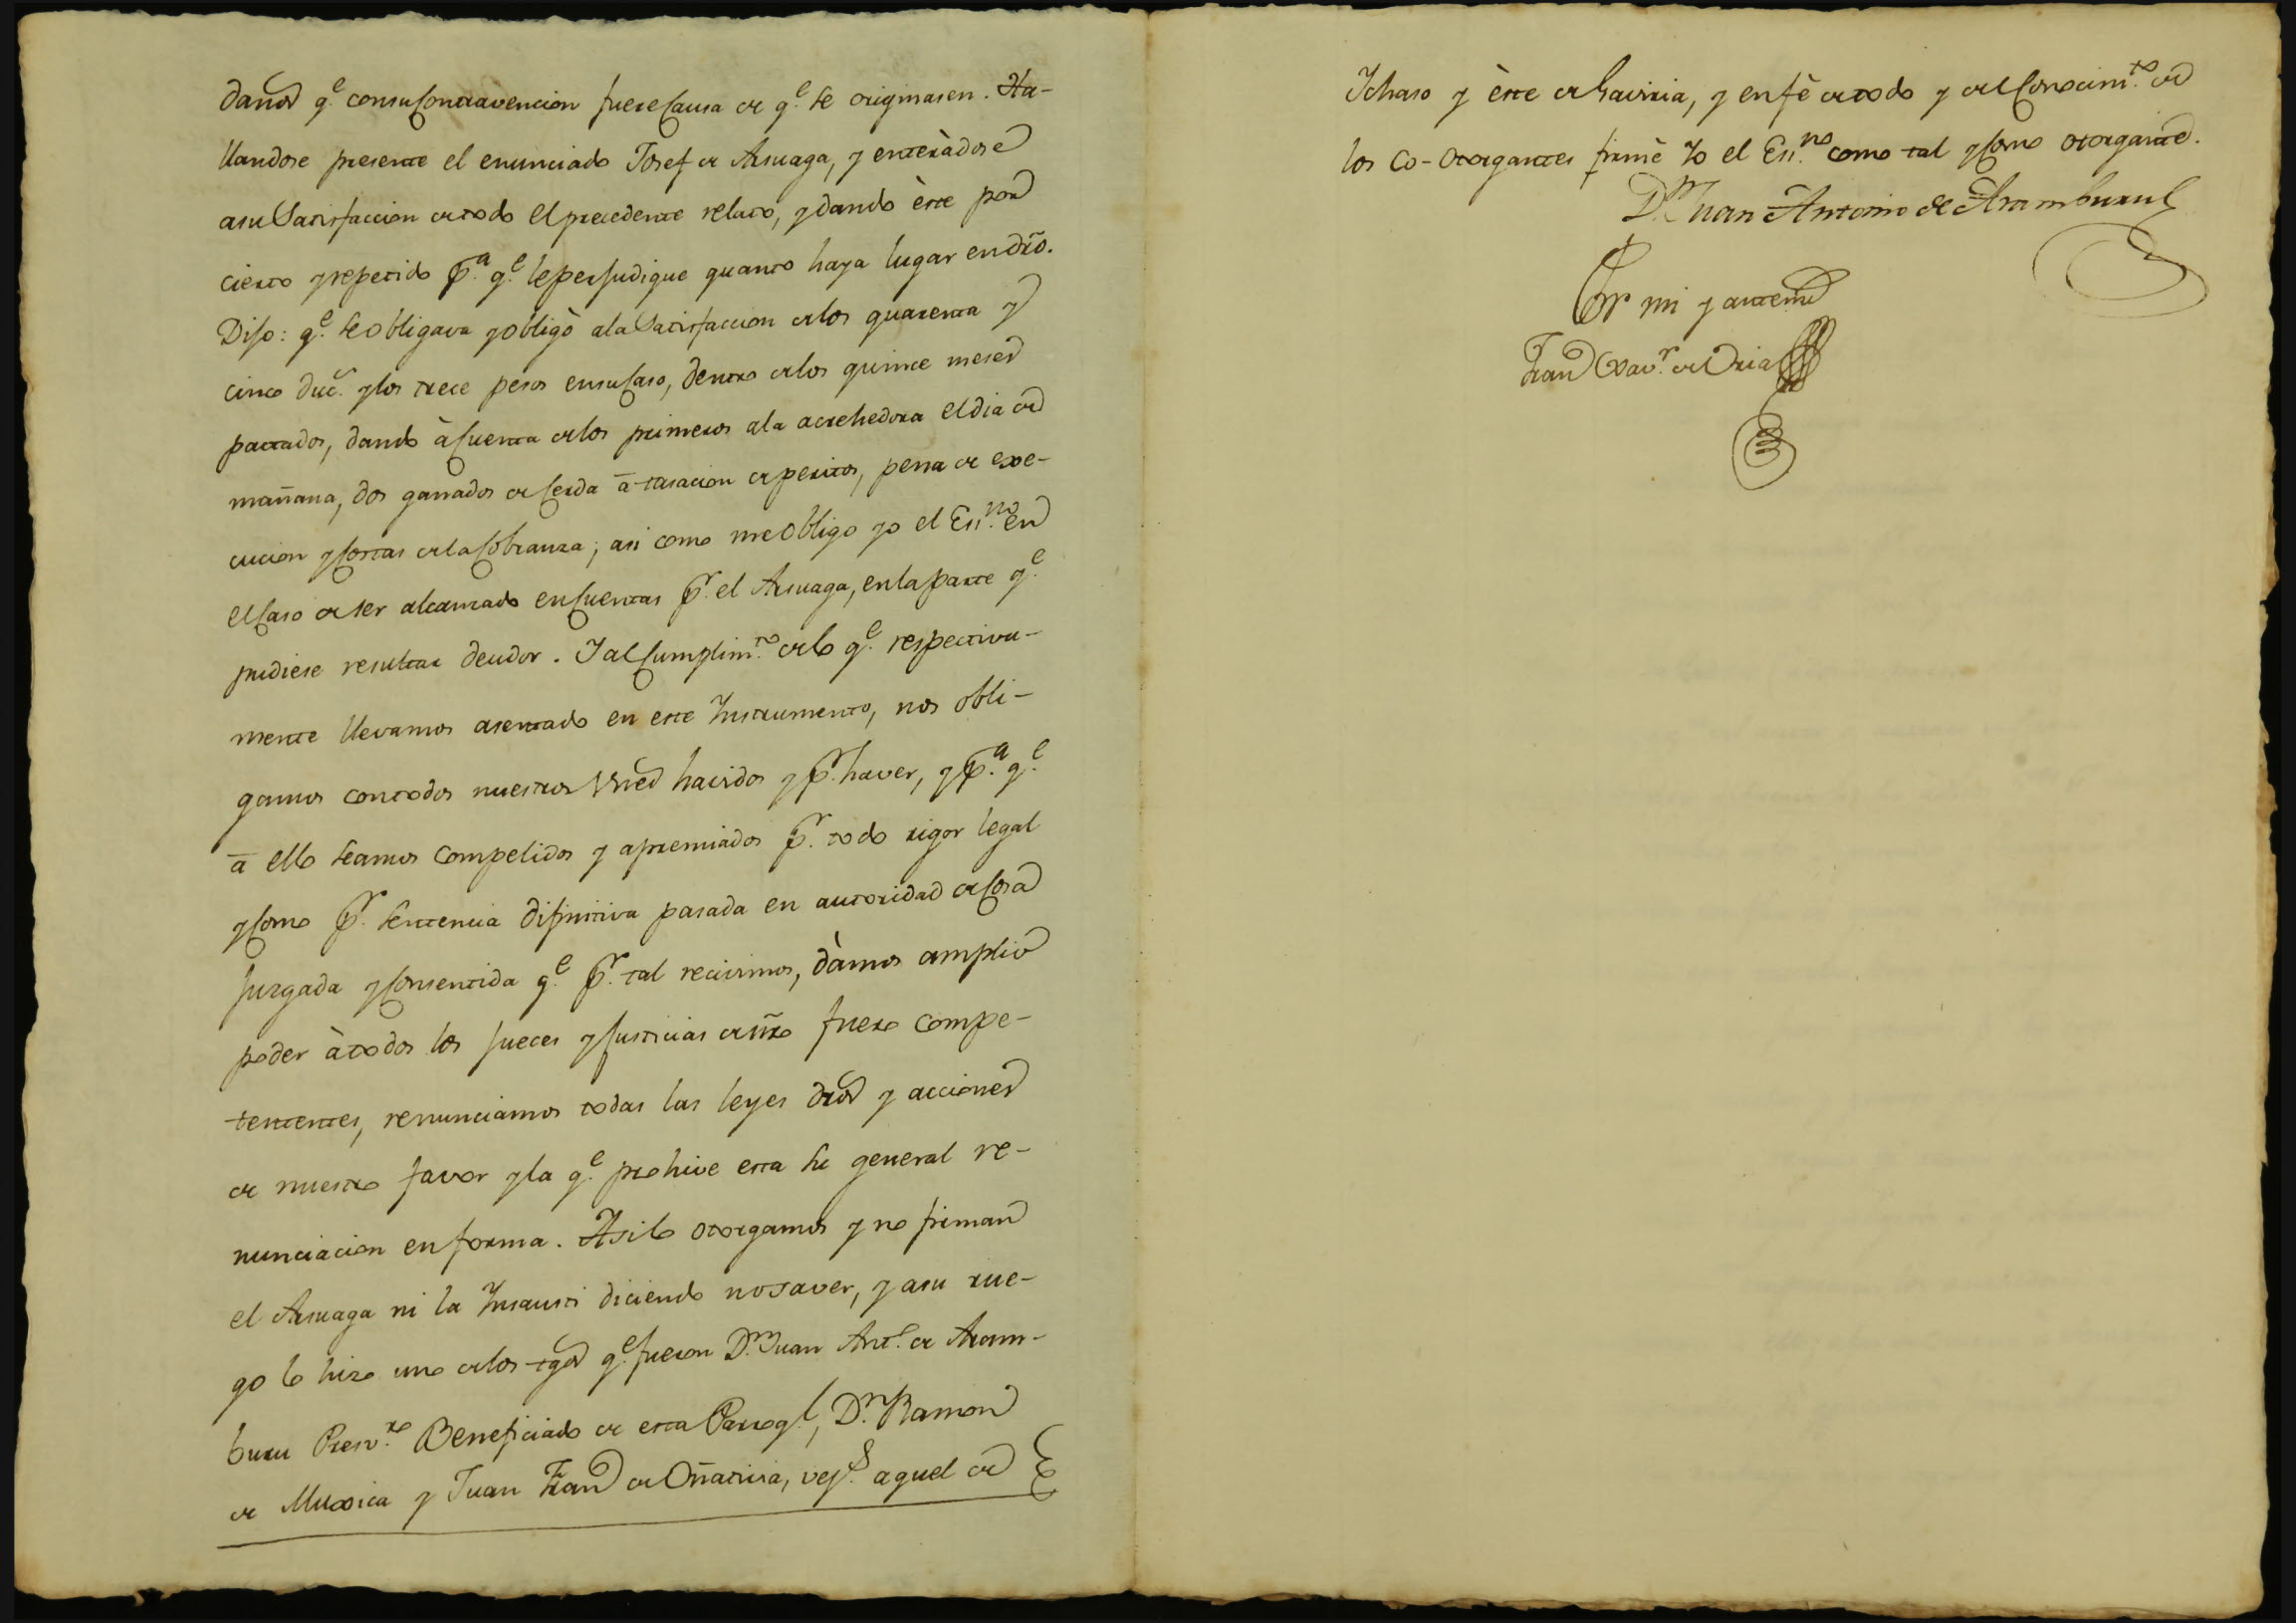 daños q.e con su Contravencion fuere Causa de q.e se originasen. Ha-
llandose presente el enunciado Josef de Arsuaga, y enteràdose
a su Satisfaccion de todo el precedente relato, y dando èste por
cierto y repetido p.a q.e le perjudique quanto haya lugar en dr̃o.
Dijo: q.e se obligava y obligò a la Satisfaccion de los quarenta y
cinco duc.s y los trece pesos en su Caso, dentro de los quince meses
pactados, dando à Cuenta de los primeros a la acrehedora el dia de
mañana, dos ganados de Cerda ā tasacion de peritos, pena de exe-
cucion y Costas de la Cobranza; asi como me obligo yo el Ess.no en
el Caso de ser alcanzado en Cuentas p.r el Arsuaga, en la parte q.e
pudiese resultar deudor. Y al Cumplim.to de lo q.e respectiva-
mente llevamos asentado en este Instrumento, nos obli-
gamos con todos nuestros Vnes havidos y p.r haver, y p.a q.e
ā ello seamos compelidos y apremiados p.r todo rigor legal
y Como p.r sentencia difinitiva pasada en autoridad de Cosa
juzgada y Consentida q.e p.r tal recivimos, dàmos amplio
poder à todos los jueces y justicias de nr̃o fuero compe-
tententes, renunciamos todas las leyes dros y acciones
de nuestro favor y la q.e prohive esta su general re-
nunciacion en forma. Asi lo otorgamos y no firman
el Arsuaga ni la Insausti diciendo no saver, y a su rue-
go lo hizo uno de los tgos q.e fueron D.n Juan Ant.o de Aram-
buru Presv.ro Beneficiado de esta Parroq.l, D.n Ramon
de Muxica y Juan Fran.co de Oñativia, vez.s aquel de
Ichaso y èste de Gaviria, y en fè de todo y del Conocim.to de
los Co-otorgantes firmè Yo el Ess.no como tal y Como otorgante.
D.n Juan Antonio de Aramburu
Por mi y ante mi
Fran.co Xav.r de Oria